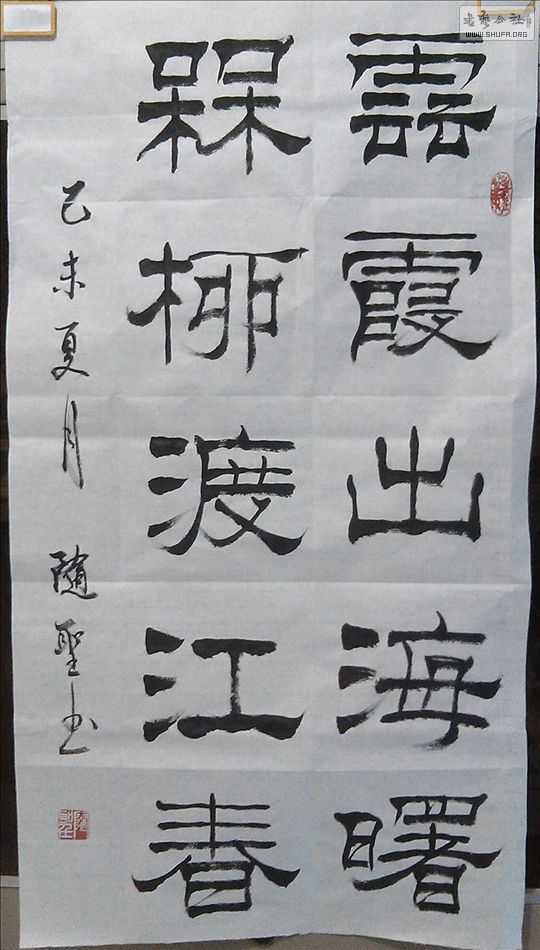 雲霞出海曙
槑柳渡江春
己未夏月 隨聖书
書藝公社
WWW.SHUFA.ORG